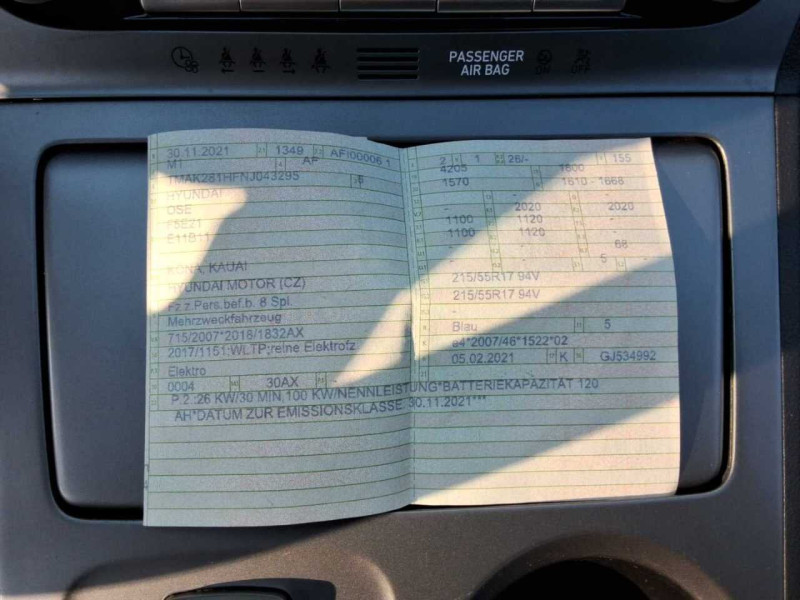 PASSENGER
AIR BAG
30.11.2021 1349 AFI00006 1
M1 AF
TMAK281HFNJ043295 6
HYUNDAI
OSE
F5E21
E11B11
KONA, KAUAI
HYUNDAI MOTOR (CZ)
Fz.z.Pers.bef.b. 8 Spl.
Mehrzweckfahrzeug
715/2007*2018/1832AX
2017/1151;WLTP;reine Elektrofz.
Elektro
0004 30AX -
2 1 26/- 155
4205 1800
1570 1610 - 1668
- - -
- 2020 - 2020
1100 1120 -
1100 1120 -
- - 68
- 5 -
215/55R17 94V
215/55R17 94V
-
Blau 5
e4*2007/46*1522*02
05.02.2021 K GJ534992
P.2.:26 KW/30 MIN,100 KW/NENNLEISTUNG*BATTERIEKAPAZITÄT 120
AH*DATUM ZUR EMISSIONSKLASSE: 30.11.2021***